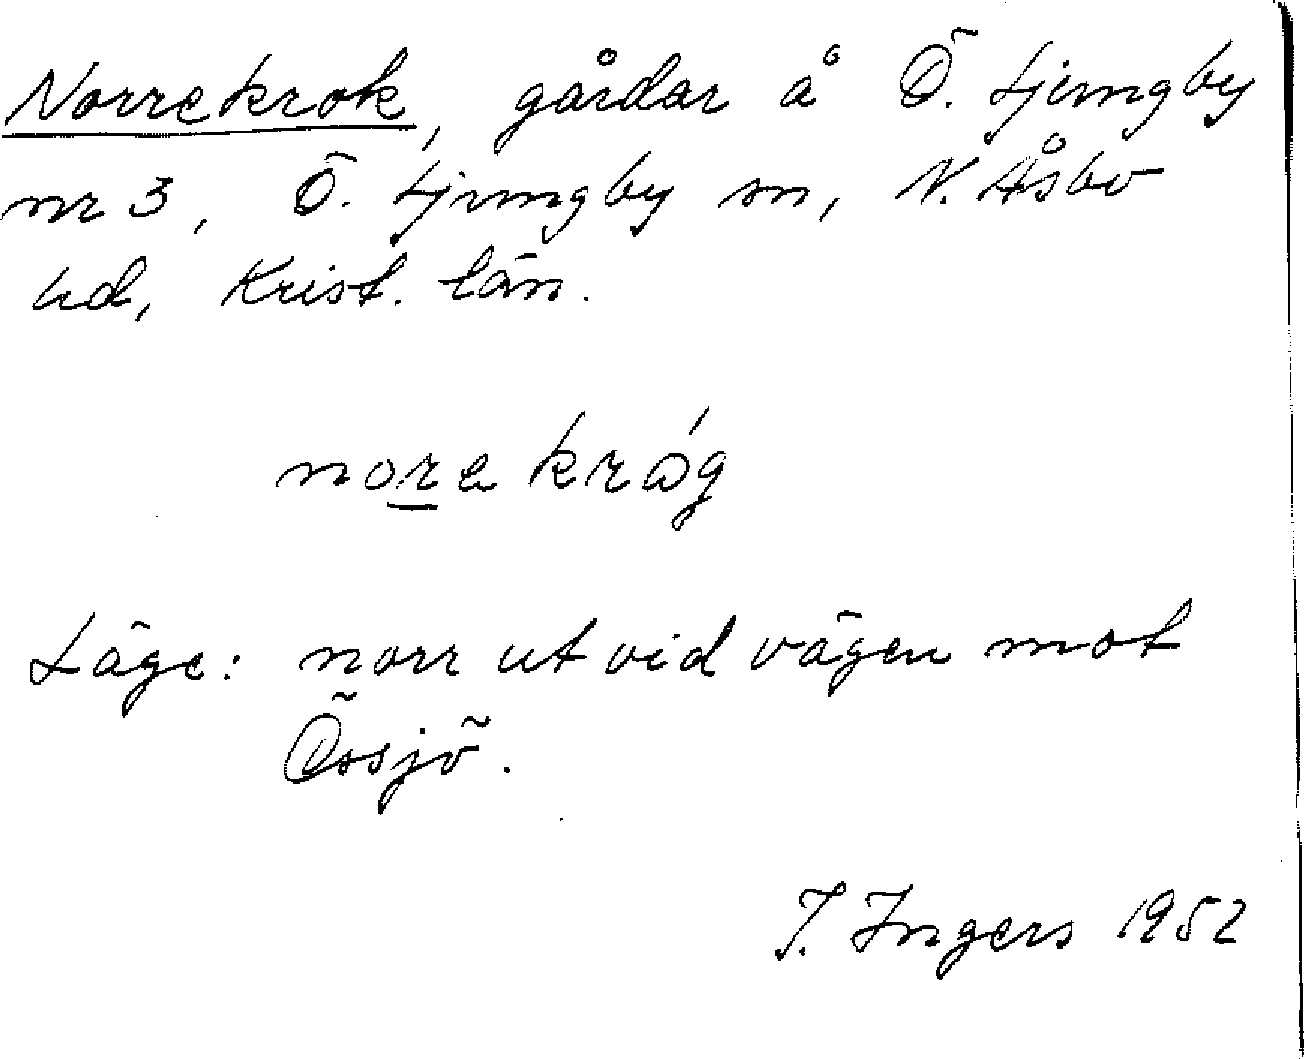 Norrekrok, gårdar å Ö. Ljungby
nr 3, Ö. Ljungby sn, N. Åsbo
hd, Krist. län.
nore króg
Läge: norr ut vid vägen mot
Össjö.
I. Ingers 1952